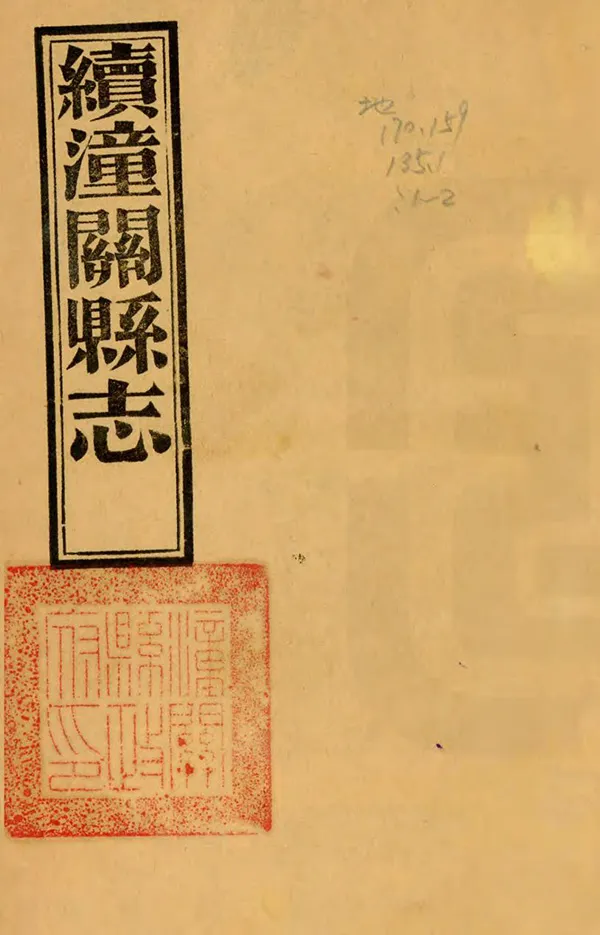 續潼關縣志
地
170.159
135.1
:1~2
潼關
縣政
府印